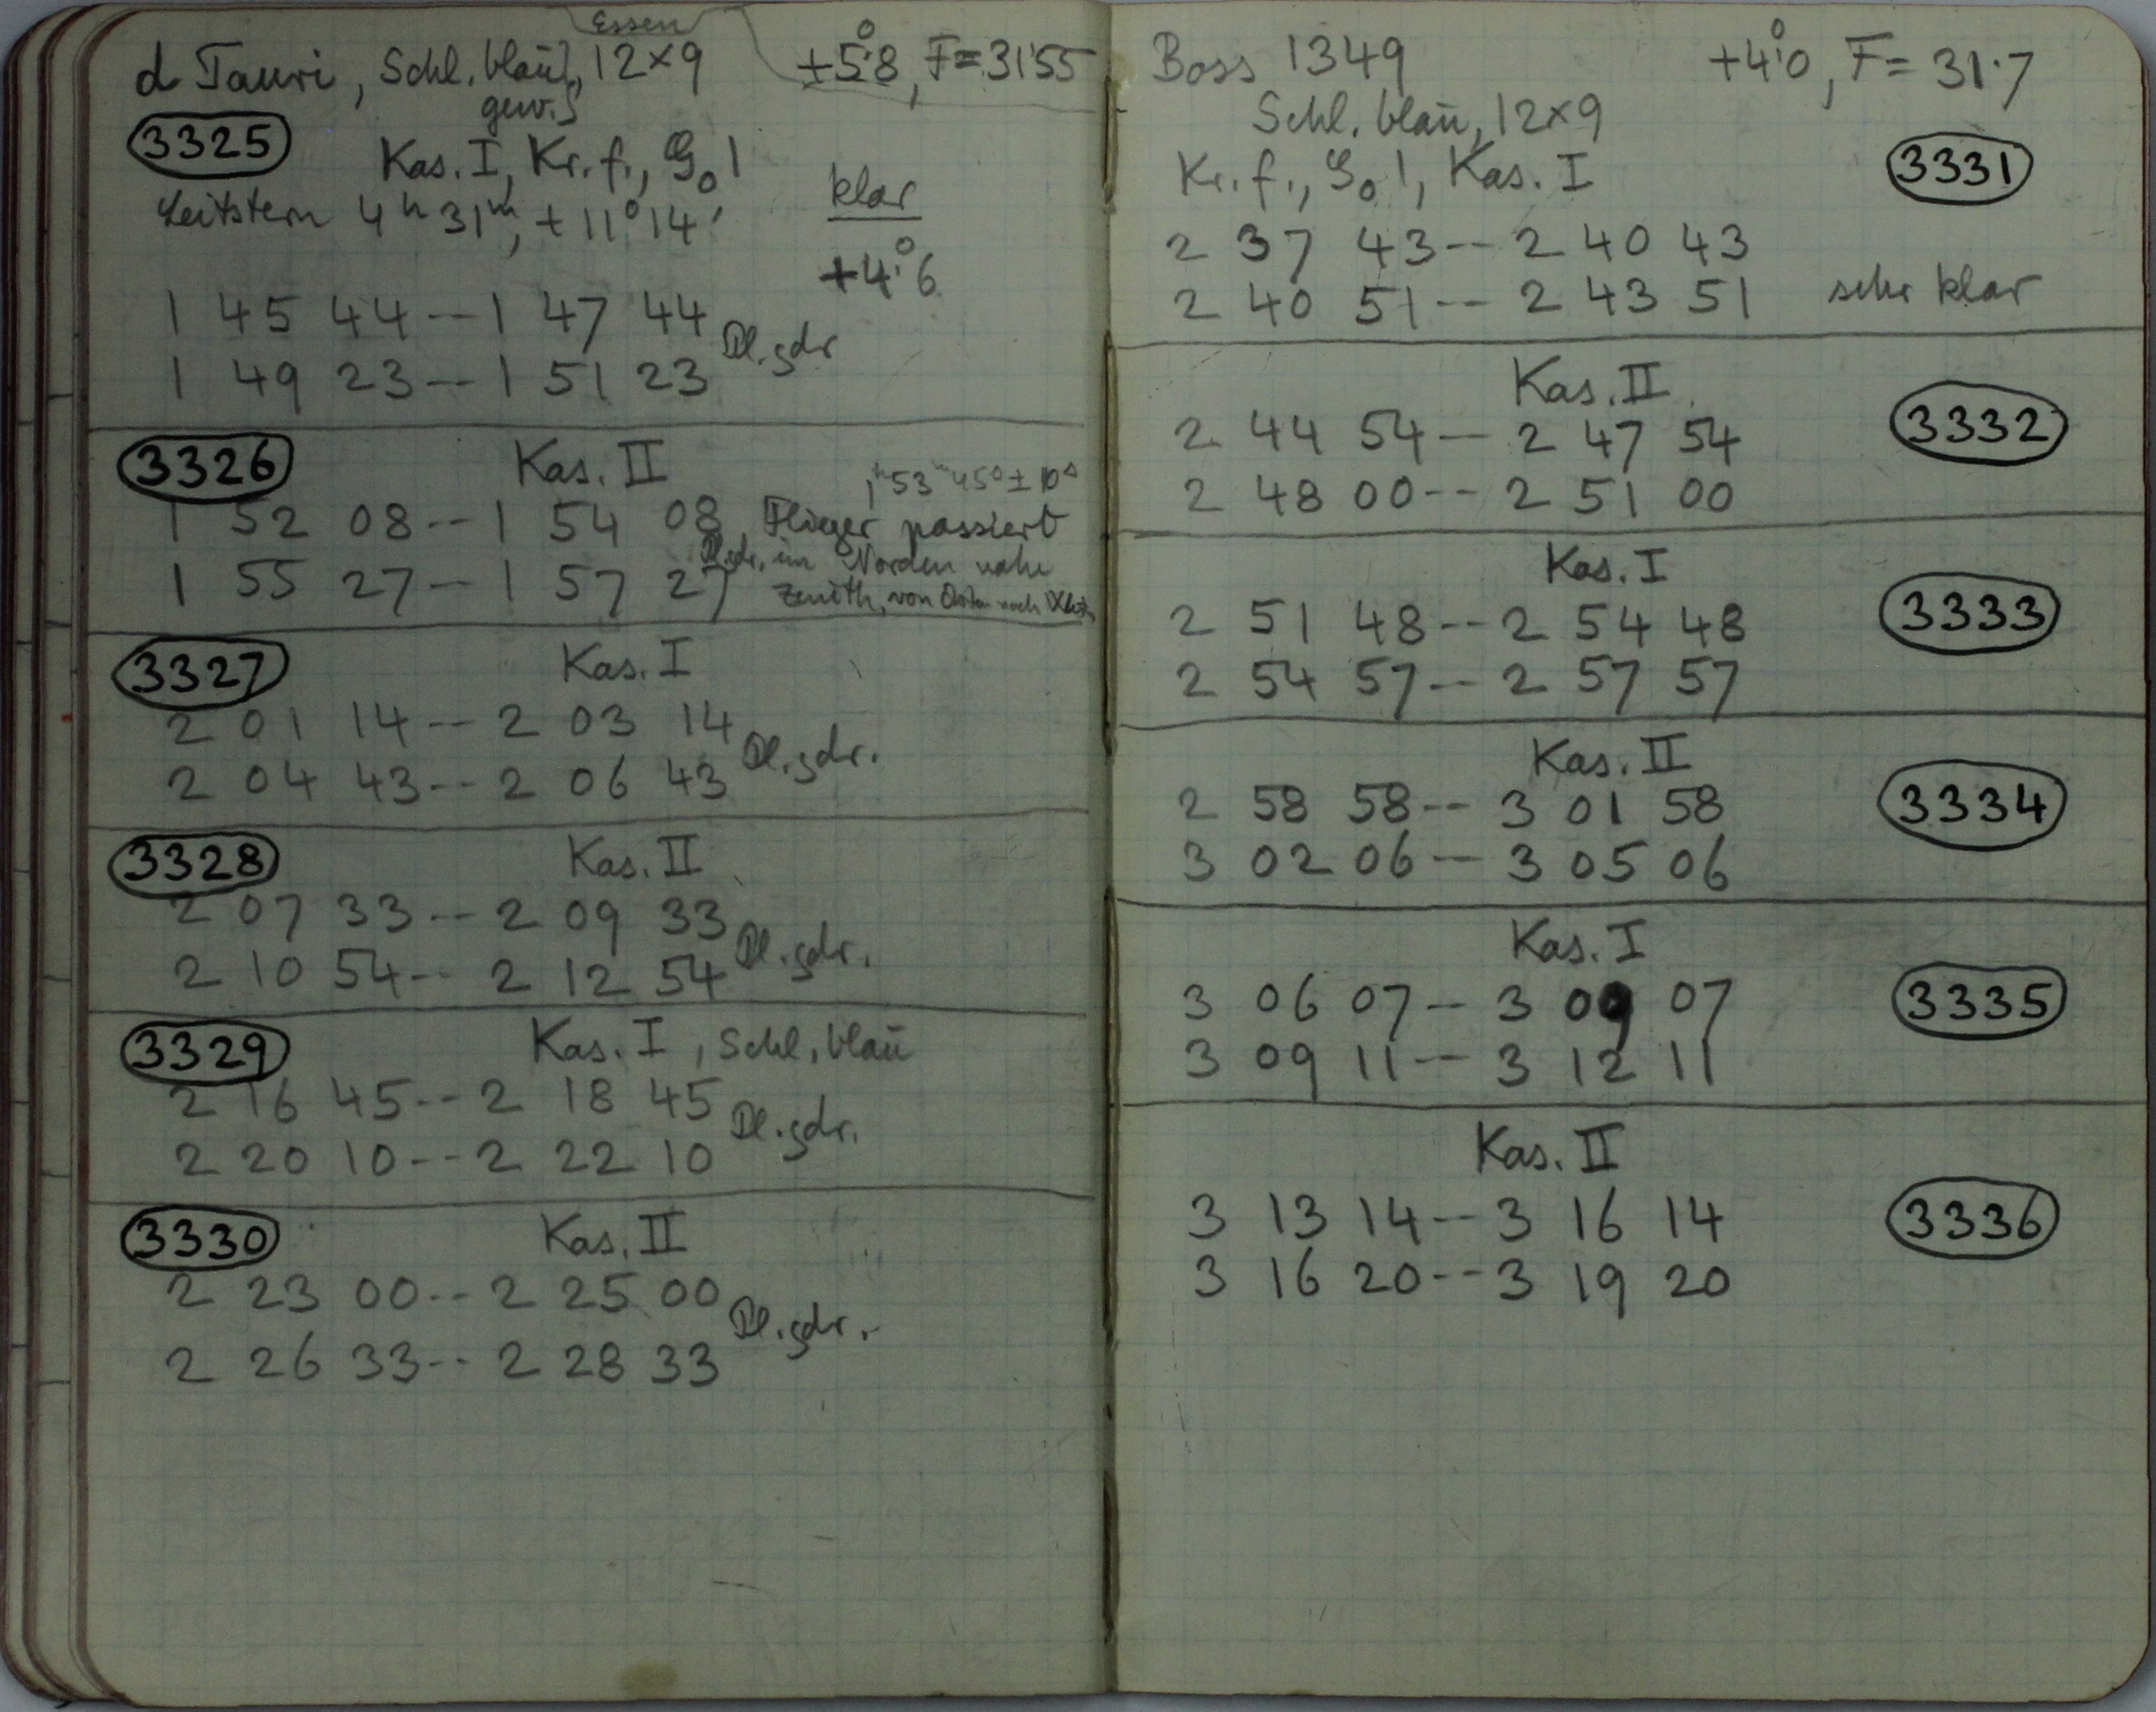 Essen
d Tauri, Schl. blau, 12×9 +5°.8, F=31.55
gew.
3325 Kas. I, Kr. f., G₀ 1
Leitstern 4ʰ 31ᵐ, +11°14' klar
+4°.6
1 45 44--1 47 44
Pl. gdr
1 49 23--1 51 23
3326 Kas. II
1ʰ53ᵐ45ˢ±10ˢ
1 52 08--1 54 08 Flieger passiert
Pl. gdr. im Norden nahe
1 55 27--1 57 27 Zenith, von Osten nach Westen
3327 Kas. I
2 01 14--2 03 14
Pl. gdr.
2 04 43--2 06 43
3328 Kas. II
2 07 33--2 09 33
Pl. gdr.
2 10 54--2 12 54
3329 Kas. I, Schl. blau
2 16 45--2 18 45
Pl. gdr.
2 20 10--2 22 10
3330 Kas. II
2 23 00--2 25 00
Pl. gdr.
2 26 33--2 28 33
Boss 1349 +4°.0, F=31.7
Schl. blau, 12×9
Kr. f., G₀ 1, Kas. I 3331
2 37 43--2 40 43
2 40 51--2 43 51 sehr klar
Kas. II
2 44 54--2 47 54 3332
2 48 00--2 51 00
Kas. I
2 51 48--2 54 48 3333
2 54 57--2 57 57
Kas. II
2 58 58--3 01 58 3334
3 02 06--3 05 06
Kas. I
3 06 07--3 09 07 3335
3 09 11--3 12 11
Kas. II
3 13 14--3 16 14 3336
3 16 20--3 19 20